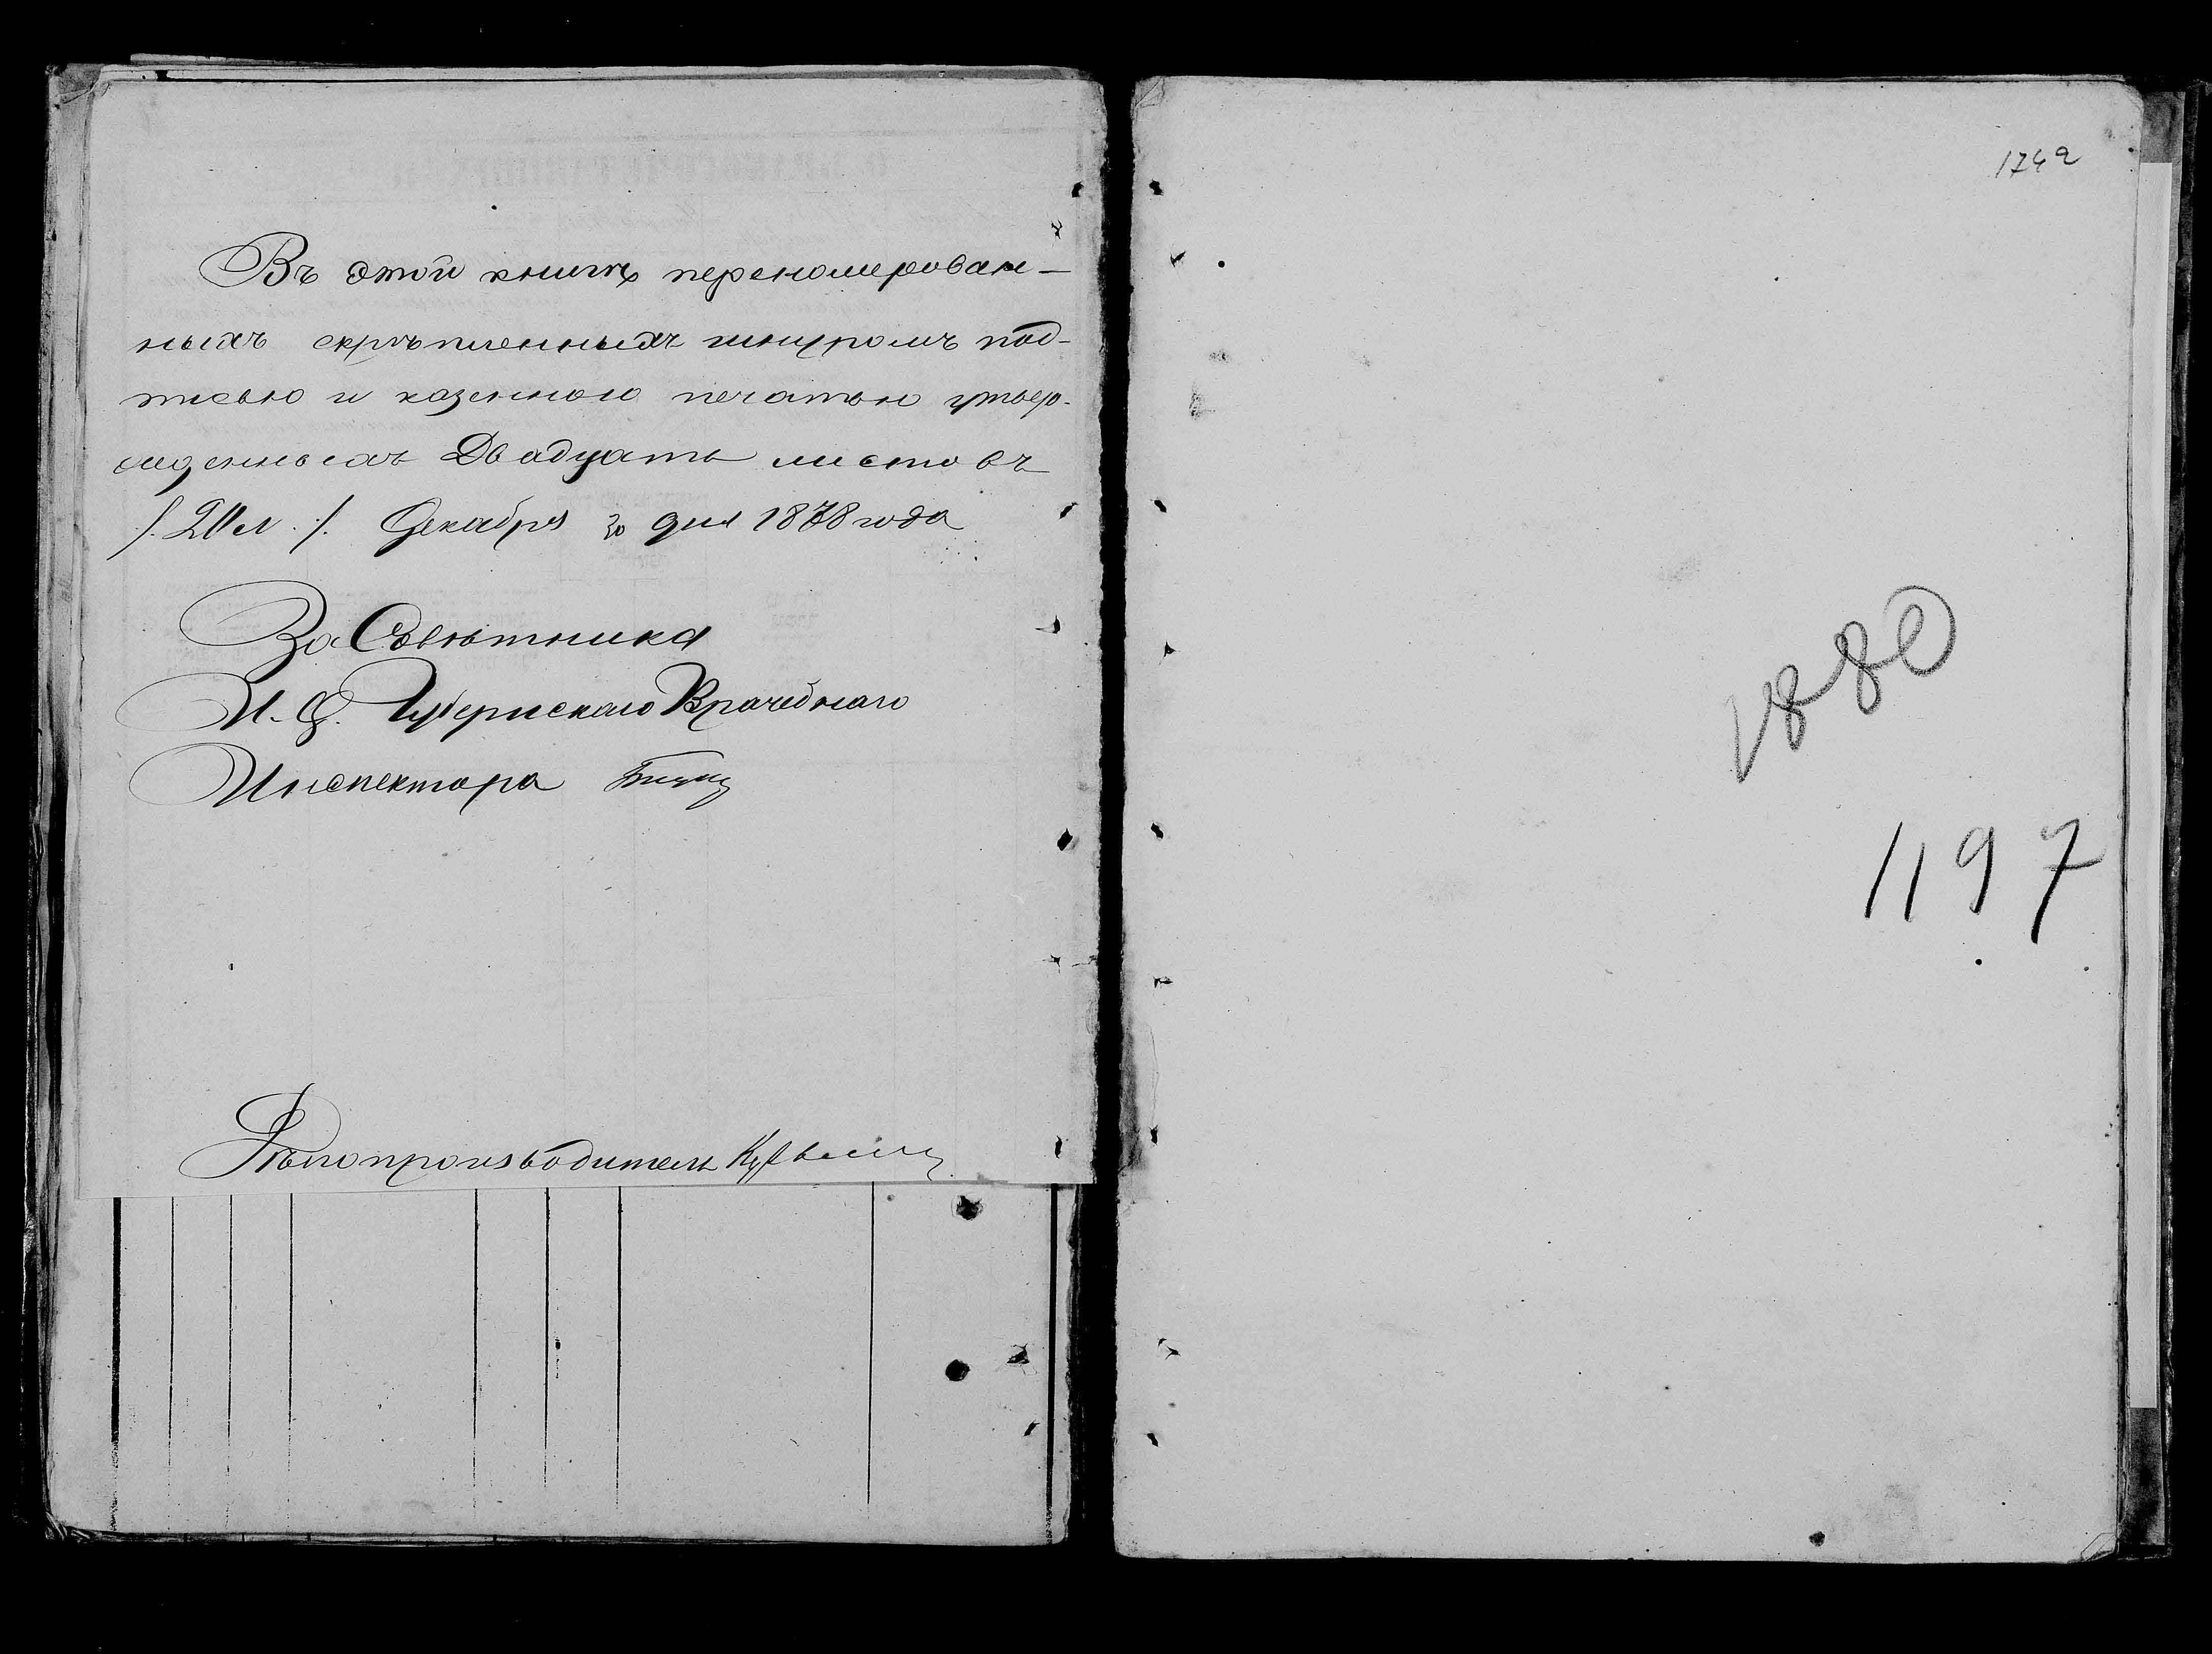 Въ этой книгѣ перенумерован-
ныхъ скрѣпленныхъ шнуромъ под-
писью и казенною печатью утвер-
жденныхъ Двадцать листовъ
/. 20 л. /. Декабря 20 дня 1878 года
За Совѣтника
И. Д. Губернскаго Врачебнаго
Инспектора
Дѣлопроизводитель
174а
1880
1197